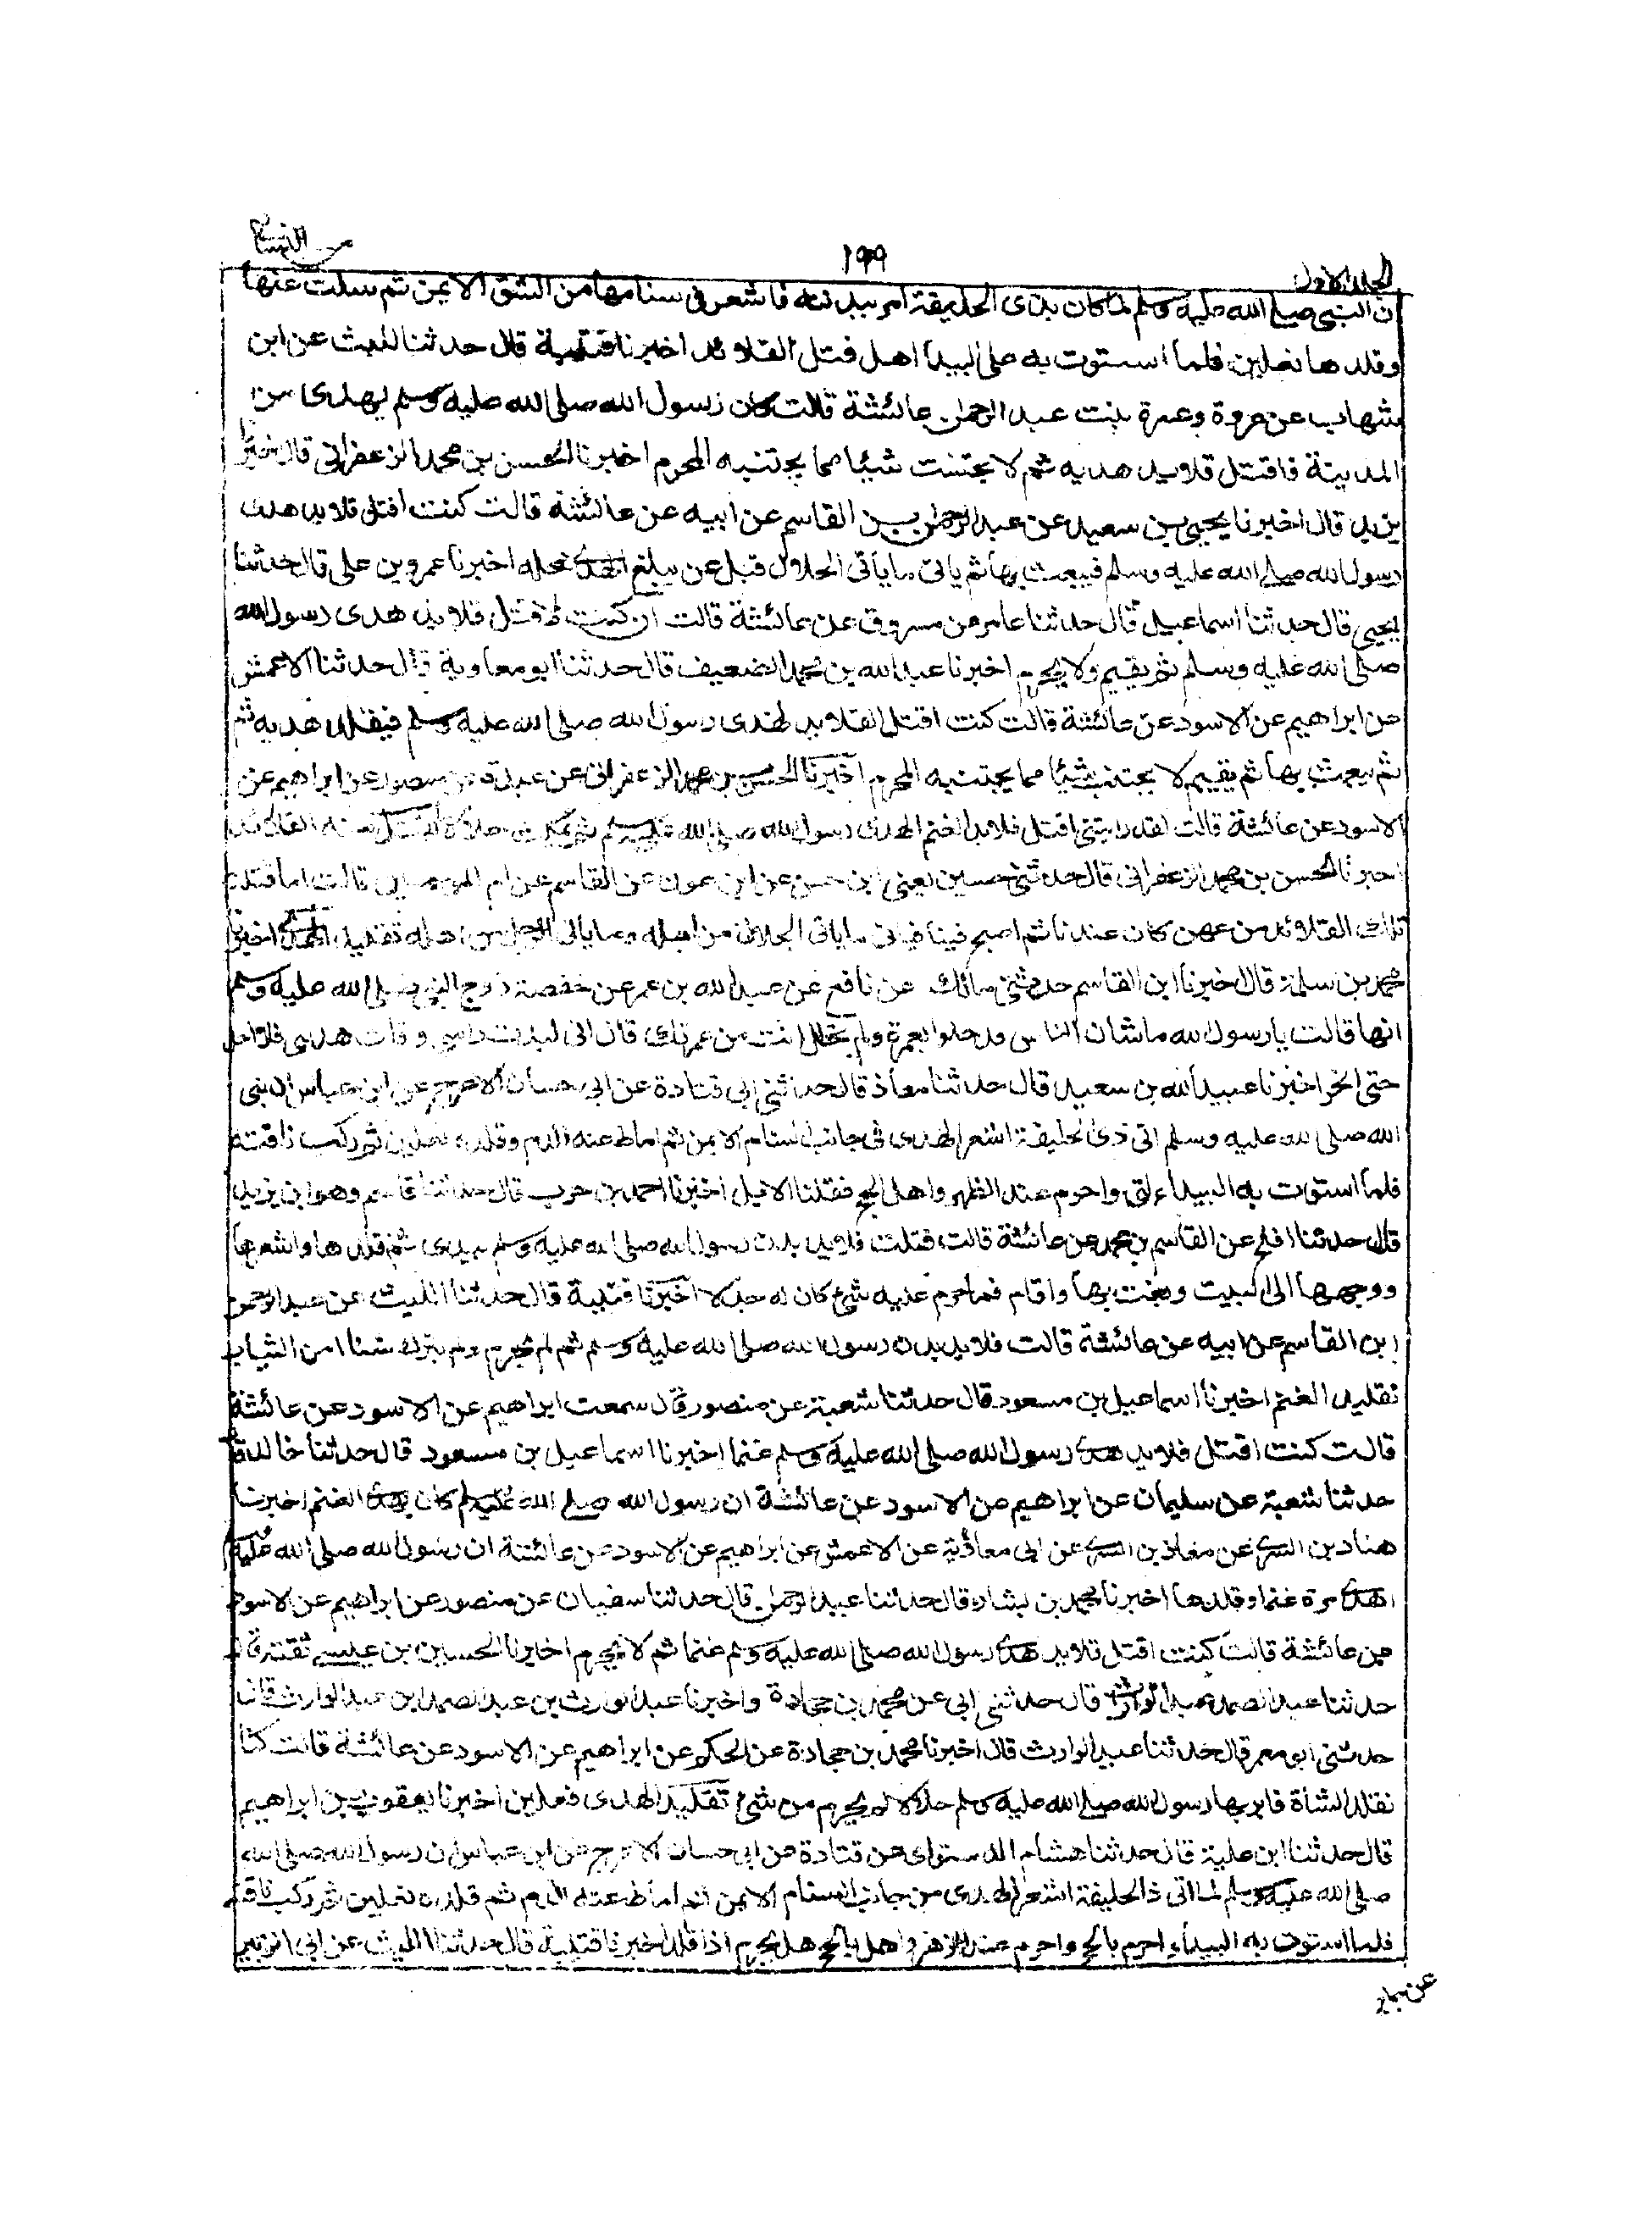 المجلد الاول
١٩٩
من النسائي
ان النبي صلى الله عليه وسلم لما كان بذى الحليفة امر ببدنته فاشعر في سنامها من الشق الايمن ثم سلت عنها
وقلدها نعلين فلما استوت به على البيدا اهل فتل القلائد اخبرنا قتيبة قال حدثنا الليث عن ابن
شهاب عن عروة وعمرة بنت عبد الرحمن عائشة قالت كان رسول الله صلى الله عليه وسلم يهدى من
المدينة فاقتل قلايد هديه ثم لا يجتنب شيئا مما يجتنبه المحرم اخبرنا الحسن بن محمد الزعفراني قال اخبرنا
يزيد قال اخبرنا يحيى بن سعيد عن عبد الرحمن بن القاسم عن ابيه عن عائشة قالت كنت افتل قلايد هدى
رسول الله صلى الله عليه وسلم فيبعث بها ثم ياتى ما ياتى الحلال قبل عن يبلغ الهدى محله اخبرنا عمرو بن على قال حدثنا
يحيى قال حدثنا اسماعيل قال حدثنا عامر عن مسروق عن عائشة قالت ان كنت لافتل قلايد هدى رسول الله
صلى الله عليه وسلم ثم يقيم ولا يحرم اخبرنا عبد الله بن محمد الضعيف قال حدثنا ابو معاوية قال حدثنا الاعمش
عن ابراهيم عن الاسود عن عائشة قالت كنت افتل القلايد لهدى رسول الله صلى الله عليه وسلم فيقلد هديه ثم
ثم يبعث بها ثم يقيم لا يجتنب شيئا مما يجتنبه المحرم اخبرنا الحسن بن محمد الزعفراني عن عبيدة عن منصور عن ابراهيم عن
الاسود عن عائشة قالت لقد رايتنى افتل قلايد الغنم لهدى رسول الله صلى الله عليه وسلم ثم يمكث حلالا
اخبرنا الحسن بن محمد الزعفراني قال حدثنى حسين يعنى ابن حسن عن ابن عون عن القاسم عن ام المومنين قالت انا فتلت
تلك القلائد من عهن كان عندنا ثم اصبح فينا فياتى ما ياتى الحلال من اهله وما ياتى الرجل من اهله تقليد الهدى اخبرنا
محمد بن سلمة قال اخبرنا ابن القاسم حدثنى مالك عن نافع عن عبد الله بن عمر عن حفصة زوج النبى صلى الله عليه وسلم
انها قالت يا رسول الله ما شان الناس قد حلوا بعمرة ولم تحلل انت من عمرتك قال انى لبدت راسى وقلدت هديى فلا احل
حتى انحر اخبرنا عبيد الله بن سعيد قال حدثنا معاذ قال حدثنى ابى قتادة عن ابى حسان الاعرج عن ابن عباس ان نبى
الله صلى الله عليه وسلم اتى ذى الحليفة اشعر الهدى فى جانب السنام الايمن ثم اماط عنه الدم وقلده نعلين ثم ركب ناقته
فلما استوت به البيداء لبى واحرم عند الظهر واهل بالحج فقلنا الابل اخبرنا احمد بن حرب قال حدثنا قاسم وهو ابن يزيد
قال حدثنا افلح عن القاسم بن محمد عن عائشة قالت فتلت قلايد بدن رسول الله صلى الله عليه وسلم بيدى ثم قلدها واشعرها
ووجهها الى البيت وبعث بها واقام فما حرم عليه شئ كان له حلالا اخبرنا قتيبة قال حدثنا الليث عن عبد الرحمن
ابن القاسم عن ابيه عن عائشة قالت قلايد بدن رسول الله صلى الله عليه وسلم ثم لم يحرم ولم يترك شيئا من الثياب
تقليد الغنم اخبرنا اسماعيل بن مسعود قال حدثنا شعبة عن منصور قال سمعت ابراهيم عن الاسود عن عائشة
قالت كنت افتل قلايد هدى رسول الله صلى الله عليه وسلم غنما اخبرنا اسماعيل بن مسعود قال حدثنا خالد قال
حدثنا شعبة عن سليمان عن ابراهيم عن الاسود عن عائشة ان رسول الله صلى الله عليه وسلم كان يهدى الغنم اخبرنا
هناد بن السرى عن معاذ بن السرى عن ابى معاوية عن الاعمش عن ابراهيم عن الاسود عن عائشة ان رسول الله صلى الله عليه
اهدى مرة غنما وقلدها اخبرنا محمد بن بشار قال حدثنا عبد الرحمن قال حدثنا سفيان عن منصور عن ابراهيم عن الاسود
عن عائشة قالت كنت افتل قلايد هدى رسول الله صلى الله عليه وسلم غنما ثم لا يحرم اخبرنا الحسين بن عيسى ثقة قال
حدثنا عبد الصمد عبد الوارث قال حدثنى ابى عن محمد بن جحادة واخبرنا عبد الوارث بن عبد الصمد ابن عبد الوارث قال
حدثنى ابو معمر قال حدثنا عبد الوارث قال اخبرنا محمد بن جحادة عن الحكم عن ابراهيم عن الاسود عن عائشة قالت كنا
نقلد الشاة فابر بها رسول الله صلى الله عليه وسلم حلالا لم يحرم من شئ تقليد الهدى نعلين اخبرنا يعقوب بن ابراهيم
قال حدثنا ابن علية قال حدثنا هشام الدستواى عن قتادة عن ابى حسان الاعرج عن ابن عباس ان رسول الله صلى الله
صلى الله عليه وسلم لما اتى ذا الحليفة اشعر الهدى من جانب السنام الايمن ثم اماط عنه الدم ثم قلده نعلين ثم ركب ناقته
فلما استوت به البيداء احرم بالحج واحرم عند الزهر واهل بالحج هل يحرم اذا قلد اخبرنا قتيبة قال حدثنا الليث عن ابى الزبير
عن جابر